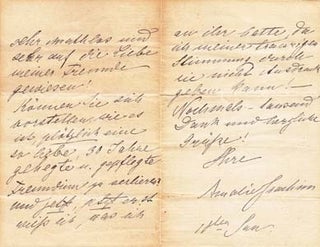 sehr machtlos und
sehr auf die Liebe
meiner Freunde
gewiesen!
Können sie sich
vorstellen wie es
ist plötzlich eine
so liebe 30 Jahre
gehegte u. gepflegte
Freundin zu verlieren
und jetzt, jetzt erst
weiß ich, was ich
an ihr hatte, da
ich meiner traurigen
Stimmung durch
sie nicht Ausdruck
geben kann! —
Nochmals tausend
Dank und herzliche
Grüße!
Ihre
Amalie Joachim
18ten Jan